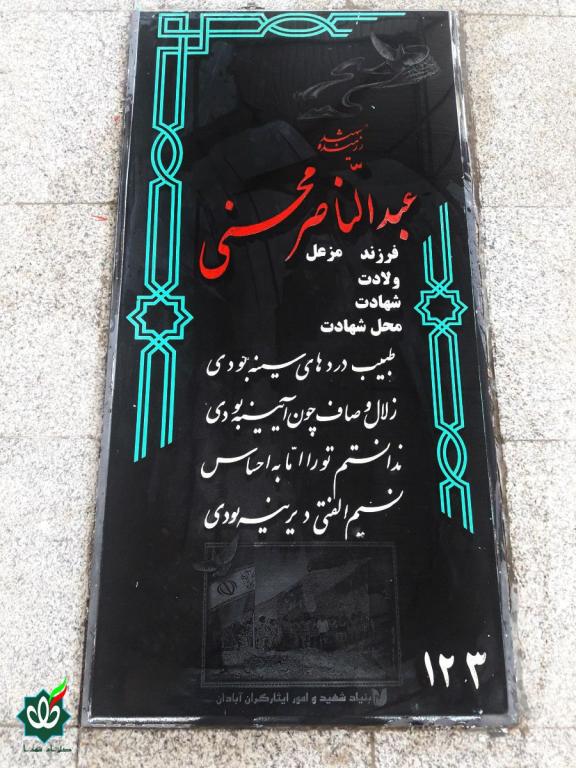 رزمنده شهید
عبدالنّاصر محسنی
فرزند مزعل
ولادت
شهادت
محل شهادت
طبیب دردهای سینه بودی
زلال و صاف چون آیینه بودی
ندانستم تو را امّا به احساس
نسیم الفتی دیرینه بودی
بنیاد شهید و امور ایثارگران آبادان
۱۲۳
گلزار شهدا